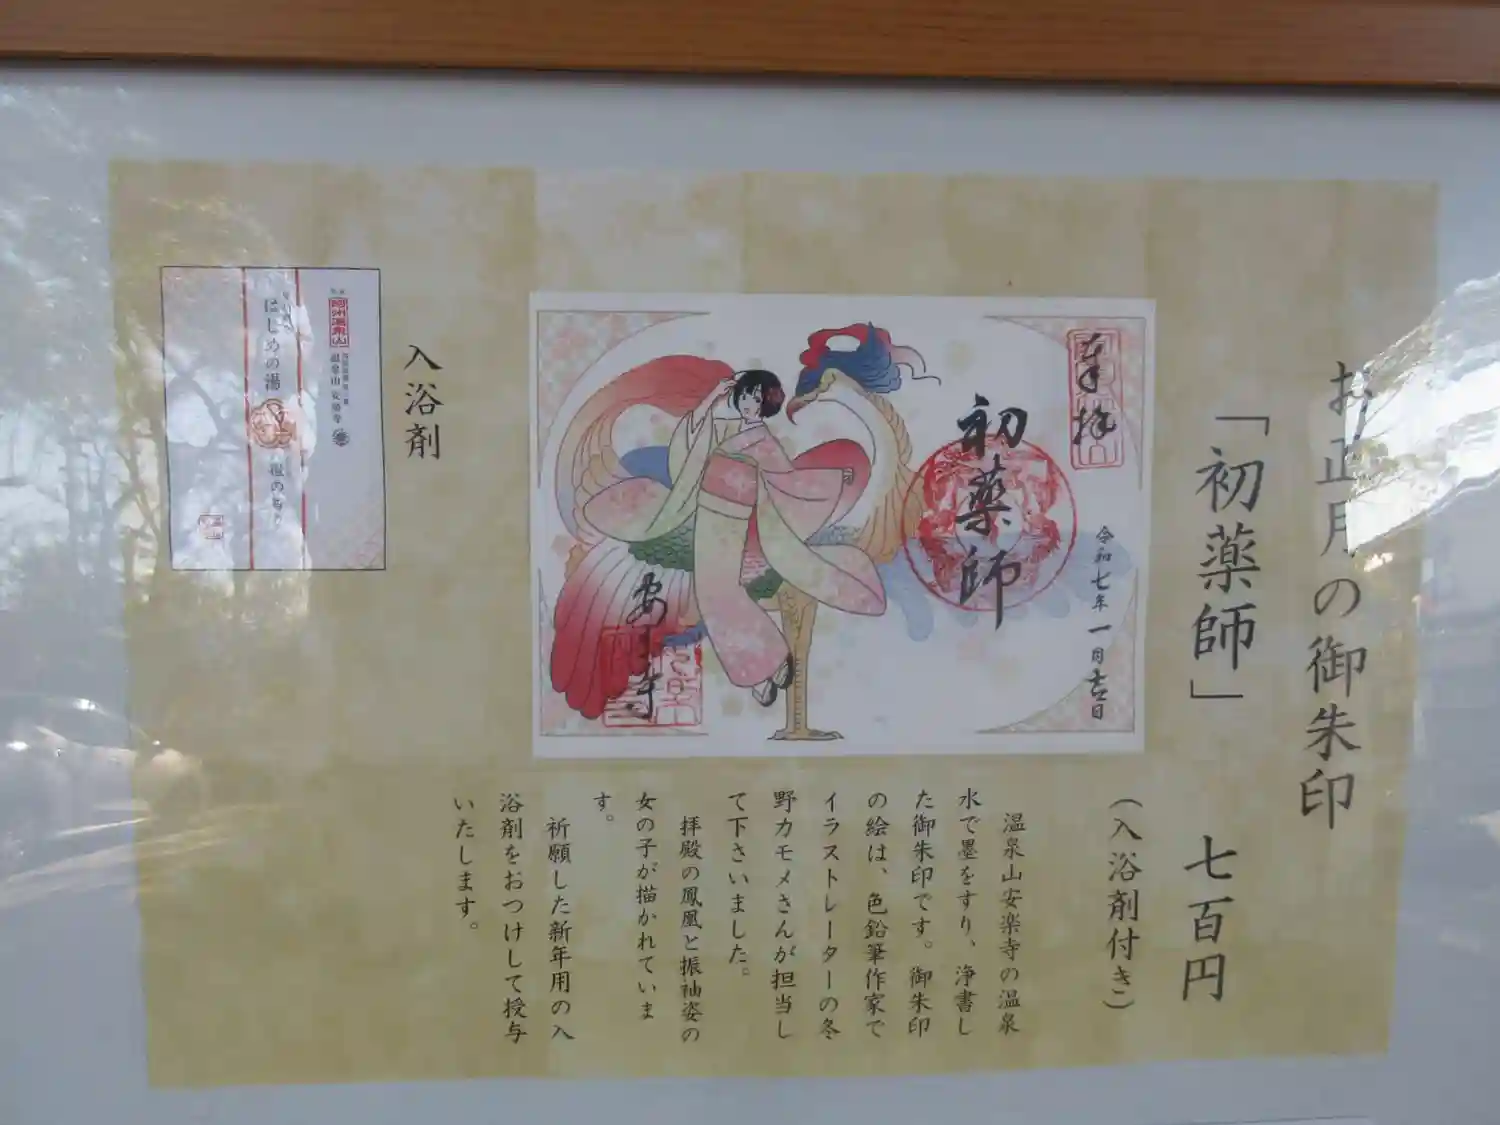 お正月の御朱印
「初薬師」 七百円
（入浴剤付き）
奉拝
初薬師
令和七年一月吉日
安楽寺
温泉山安楽寺の温泉
水で墨をすり、浄書し
た御朱印です。御朱印
の絵は、色鉛筆作家で
イラストレーターの冬
野カモメさんが担当し
て下さいました。
拝殿の鳳凰と振袖姿の
女の子が描かれていま
す。
祈願した新年用の入
浴剤をおつけして授与
いたします。
入浴剤
阿州温泉山
温泉山 安楽寺
はじめの湯